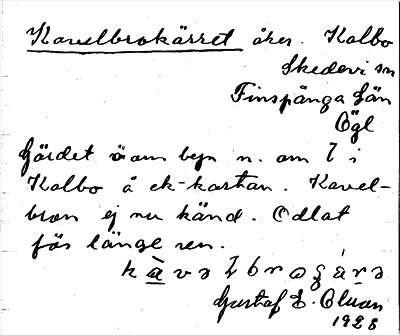 Kavelbrokärret åker. Kolbo
Skedevi sn
Finspånga län
Ögl
Gärdet öam byn n. om l i
Kolbo å ek-kartan. Kavel-
bron ej nu känd. Odlat
för länge sen.
Gustaf E.
1928